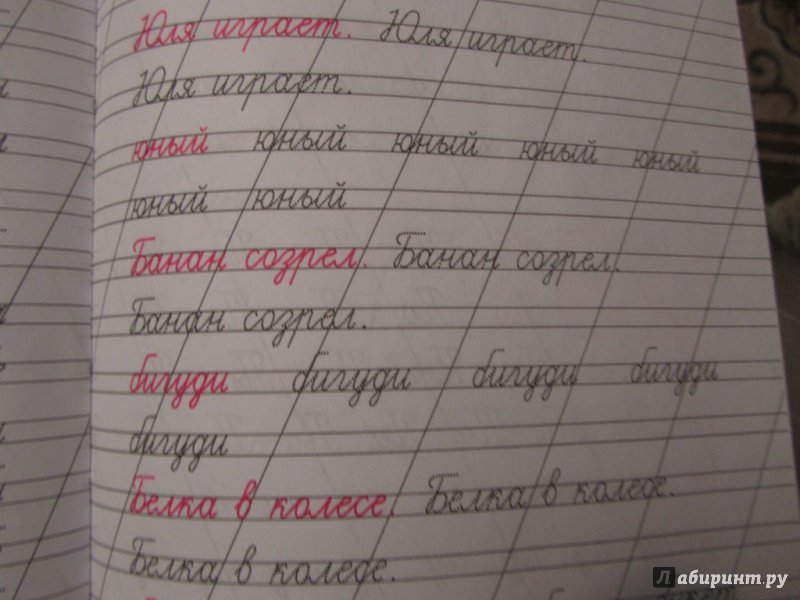 Юля играет. Юля играет.
Юля играет.
юный юный юный юный юный
юный юный
Банан созрел. Банан созрел.
Банан созрел.
бигуди бигуди бигуди бигуди
бигуди
Белка в колесе. Белка в колесе.
Белка в колесе.
Лабиринт.ру